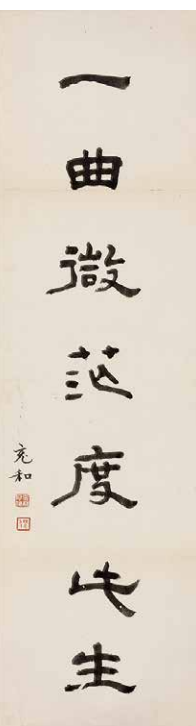 一曲微茫度此生
充和